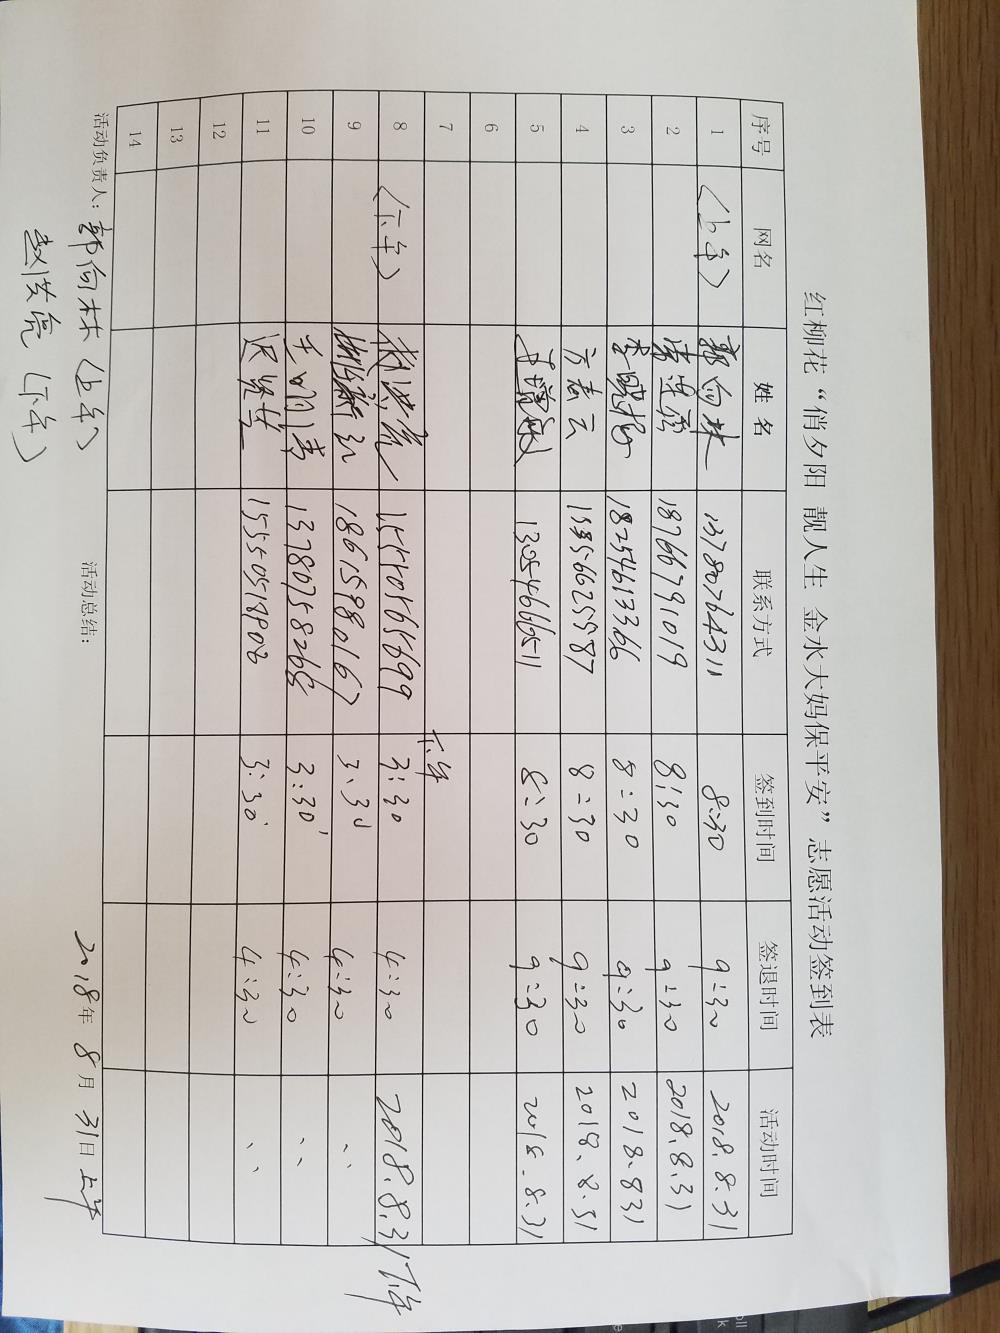 红柳花“俏夕阳 靓人生 金水大妈保平安”志愿活动签到表
序号 网名 姓名 联系方式 签到时间 签退时间 活动时间
1 (上午) 郭向林 13780764311 8:30 9:30 2018.8.31
2 18766791019 8:30 9:30 2018.8.31
3 李晓梅 18254613366 8:30 9:30 2018.8.31
4 方春云 8:30 9:30 2018.8.31
5 13054666511 8:30 9:30 2018.8.31
6
7 下午
8 (下午) 赵洪亮 15550565699 3:30 4:30 2018.8.31下午
9 18615980167 3:30 4:30 、、
10 毛明清 13780758268 3:30 4:30 、、
11 15550518908 3:30 4:30 、、
12
13
14
活动负责人：郭向林(上午) 活动总结： 2018年8月31日上午
赵洪亮(下午)